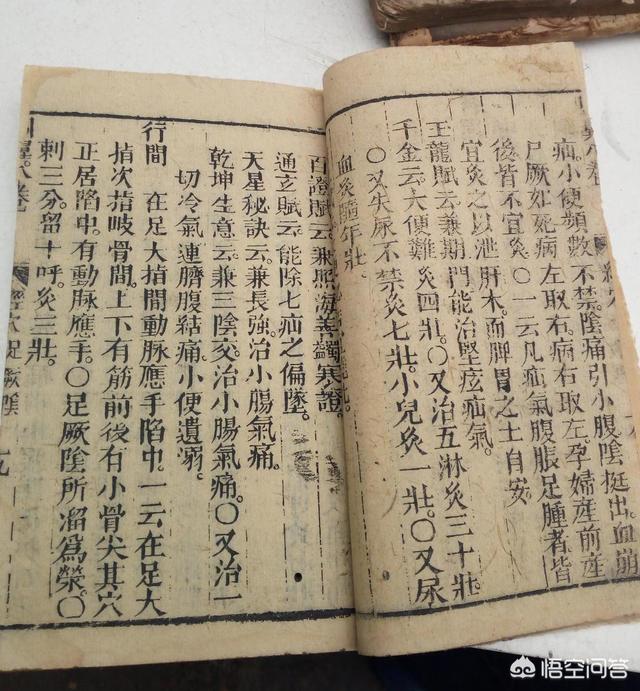 疝。小便頻數不禁。陰痛引小腹。陰挺出。血崩
尸厥如死。病左取右。病右取左。孕婦產前產
後皆不宜灸。〇一云凡疝氣腹脹足腫者皆
宜灸之。以泄肝木。而脾胃之土自安。
玉龍賦云兼期門能治堅痃疝氣。
千金云大便難灸四壯。〇又治五淋灸三十壯
〇又失尿不禁灸七壯。小兒灸一壯。〇又尿
血灸隨年壯。
百證賦云兼照海善蠲寒證。
通玄賦云。能除七疝之偏墜。
天星秘訣云。兼長強。治小腸氣痛。
乾坤生意云。兼三陰交。治小腸氣痛。〇又治一
切冷氣連臍腹結痛。小便遺溺。
行間 在足大指間動脉應手陷中。一云在足大
指次指岐骨間。上下有筋前後有小骨尖其穴
正居陷中。有動脉應手。〇足厥陰所溜爲滎。〇
刺三分。留十呼。灸三壯。
經穴足厥陰 九
悟空问答